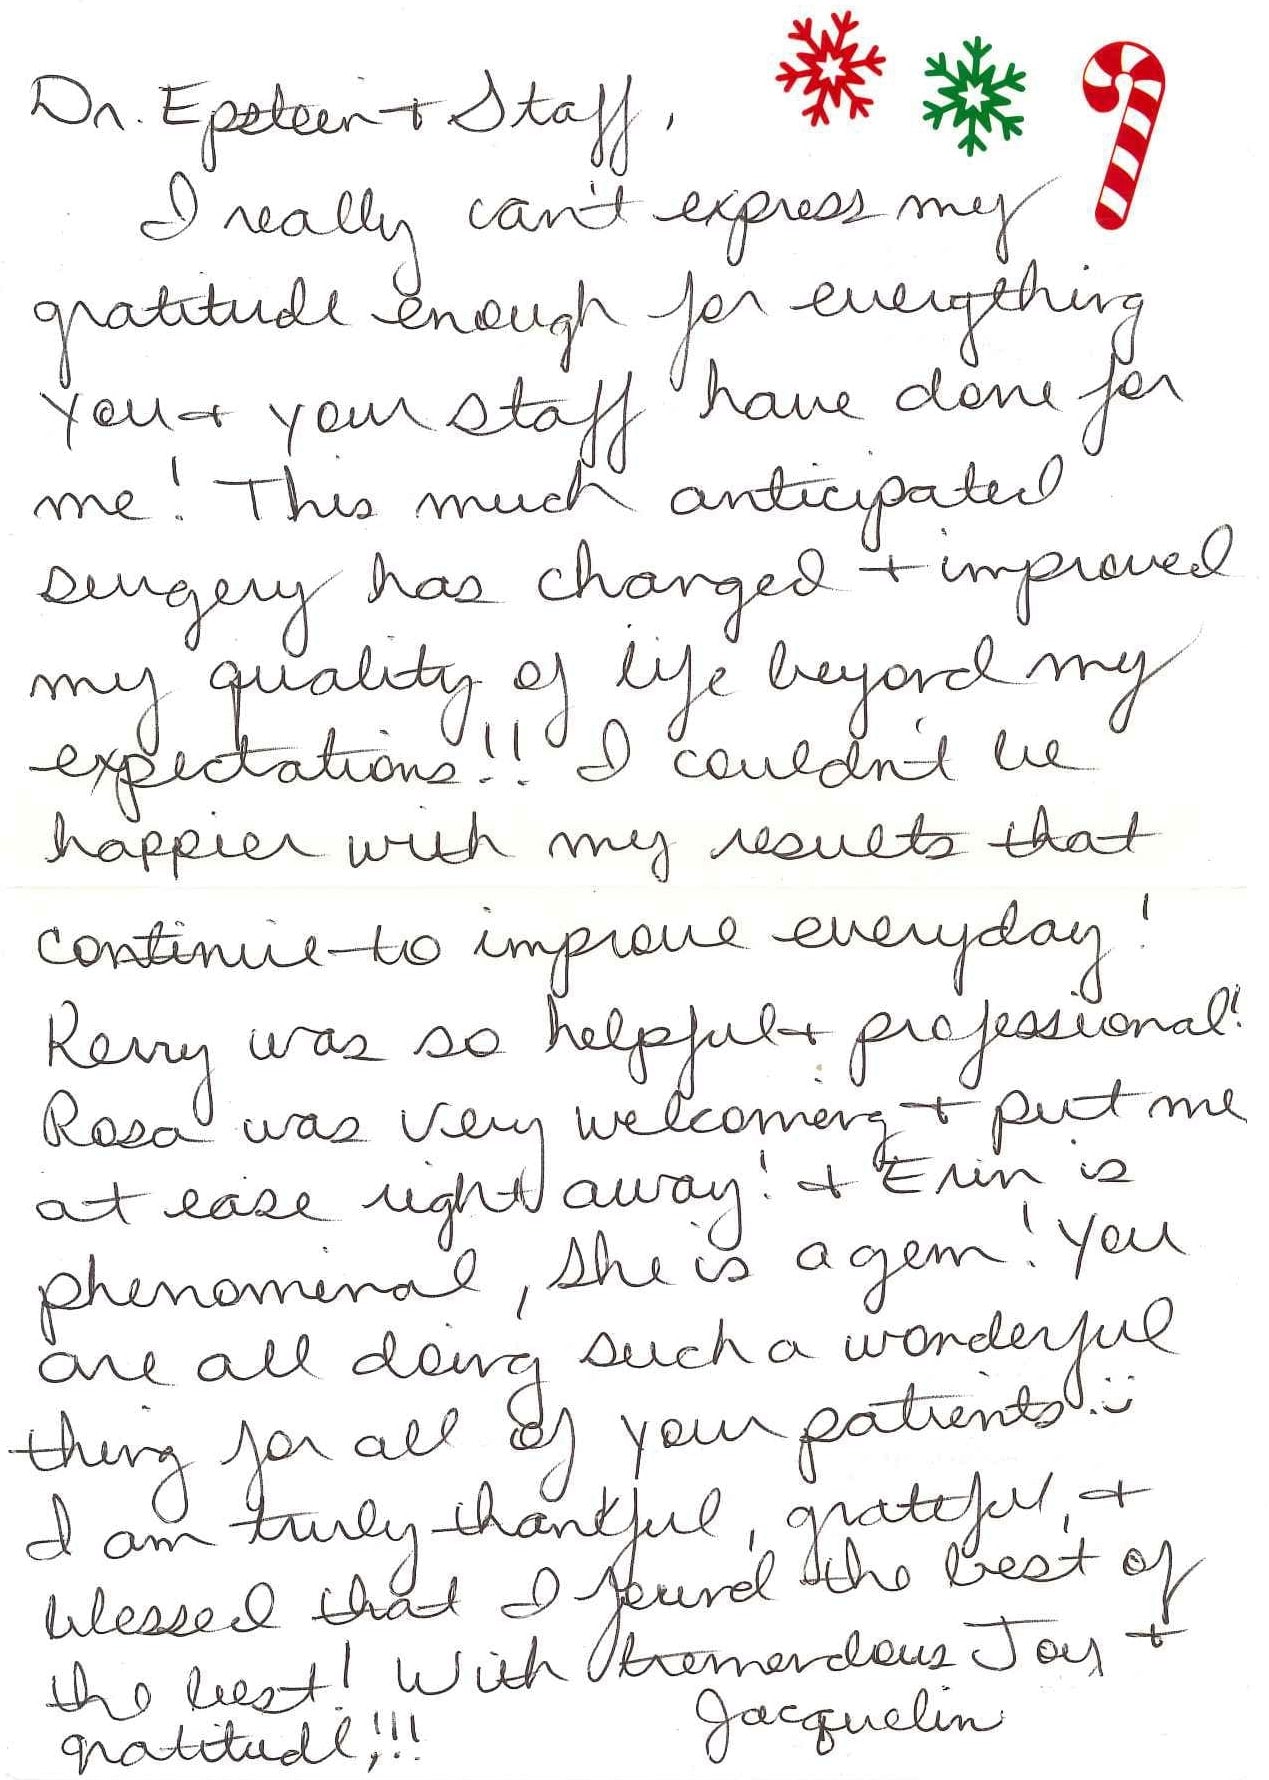 Dr. Epstein + Staff,
I really can't express my
gratitude enough for everything
you + your staff have done for
me! This much anticipated
surgery has changed + improved
my quality of life beyond my
expectations!! I couldn't be
happier with my results that
continue to improve everyday!
Kerry was so helpful + professional!
Rosa was very welcoming + put me
at ease right away! + Erin is
phenominal, she is a gem! You
are all doing such a wonderful
thing for all of your patients :)
I am truly thankful, grateful, +
blessed that I found the best of
the best! With tremendous Joy +
gratitude,!!! Jacquelin